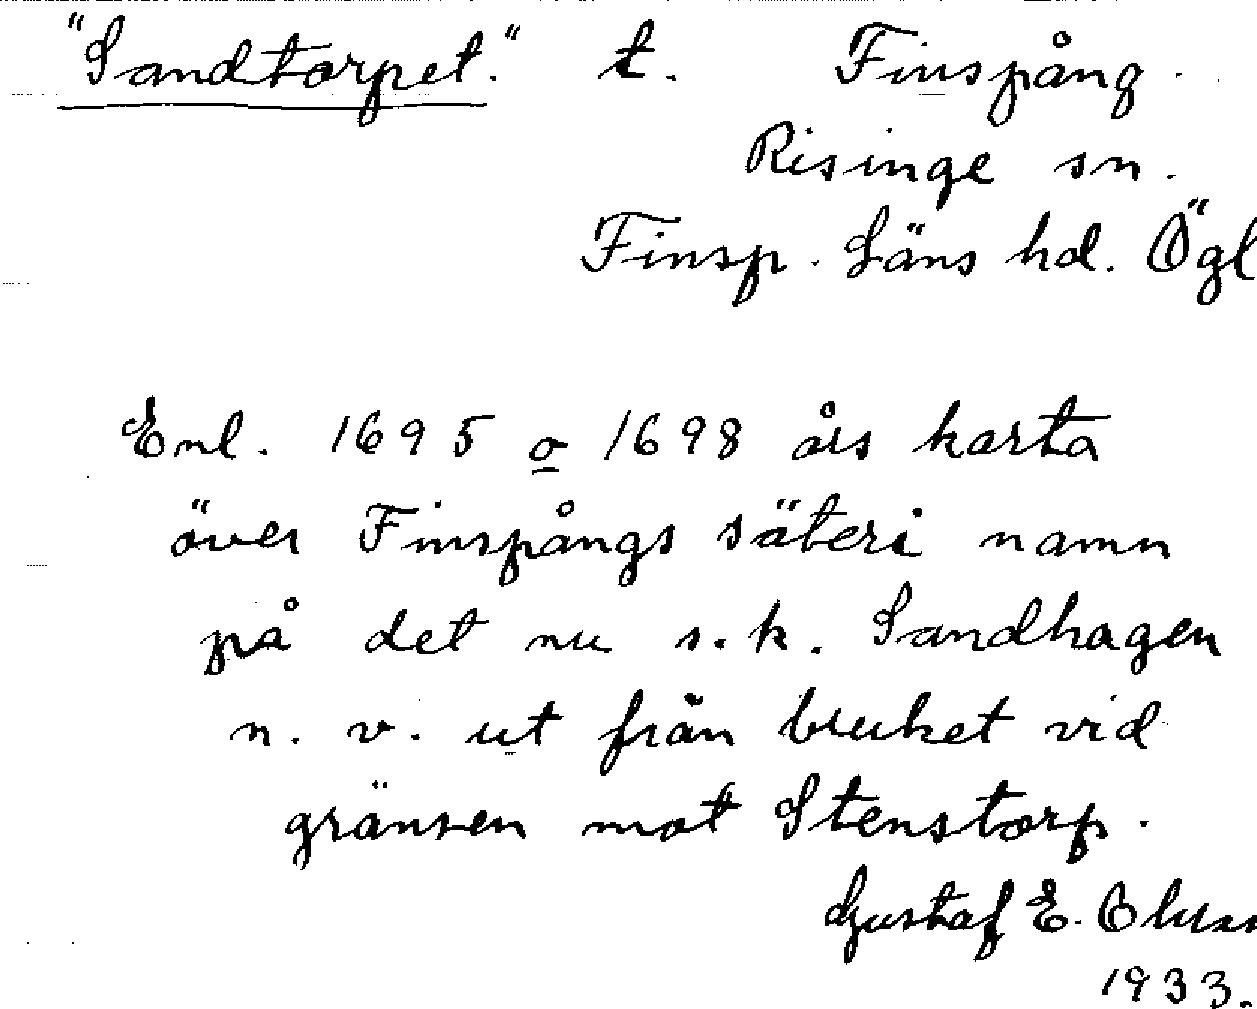 "Sandtorpet." t. Finspång.
Risinge sn.
Finsp. Läns hd. Ögl
Enl. 1695 o 1698 års karta
över Finspångs säteri namn
på det nu s.k. Sandhagen
n. v. ut från bruket vid
gränsen mot Stenstorp.
Gustaf E.
1933.